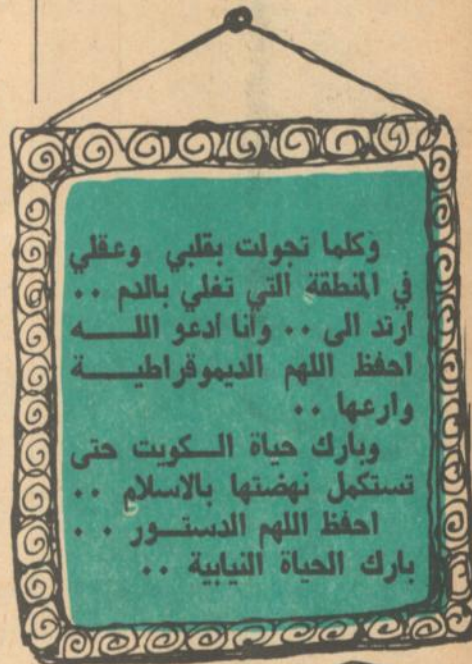 وكلما تجولت بقلبي وعقلي
في المنطقة التي تغلي بالدم ..
ارتد الى .. وأنا ادعو اللـــه
احفظ اللهم الديموقراطيـــة
وارعها ..
وبارك حياة الــكويت حتى
تستكمل نهضتها بالاسلام ..
احفظ اللهم الدستــور . .
بارك الحياة النيابية ..